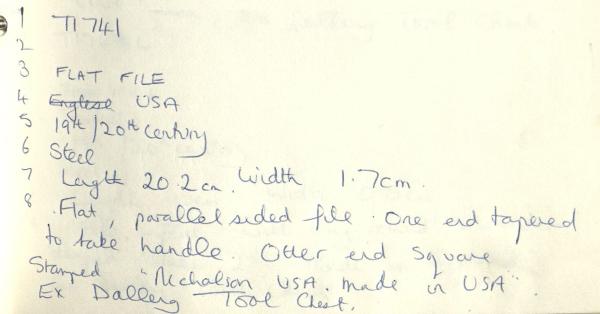 1 TI 741
2
3 FLAT FILE
4 Englese USA
5 19th/20th century
6 Steel
7 Length 20.2cm. Width 1.7cm.
8 Flat, parallel sided file. One end tapered
to take handle. Other end square
Stamped "Nicholson USA. made in USA".
Ex Dalleng Tool Chest.